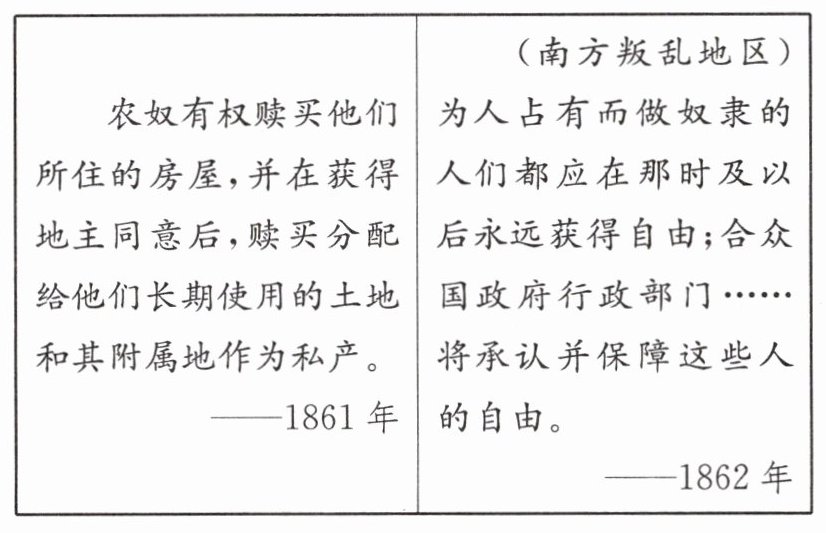 农奴有权赎买他们
所住的房屋,并在获得
地主同意后,赎买分配
给他们长期使用的土地
和其附属地作为私产。
——1861年
(南方叛乱地区)
为人占有而做奴隶的
人们都应在那时及以
后永远获得自由;合众
国政府行政部门……
将承认并保障这些人
的自由。
——1862年